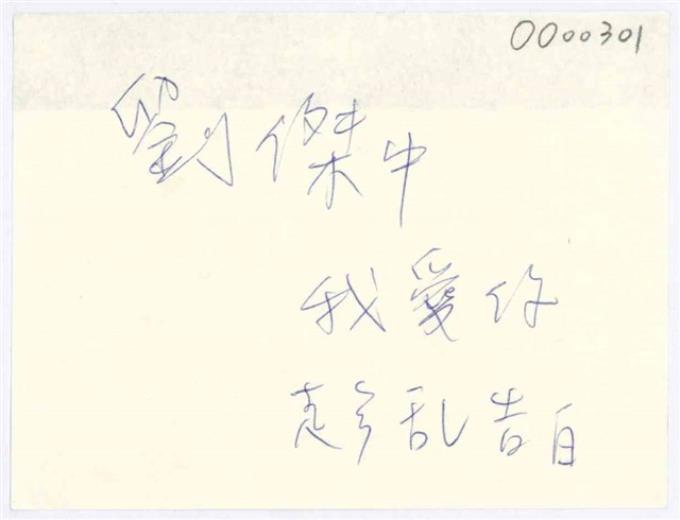 0000301
劉傑中
我愛你
趁乱告白